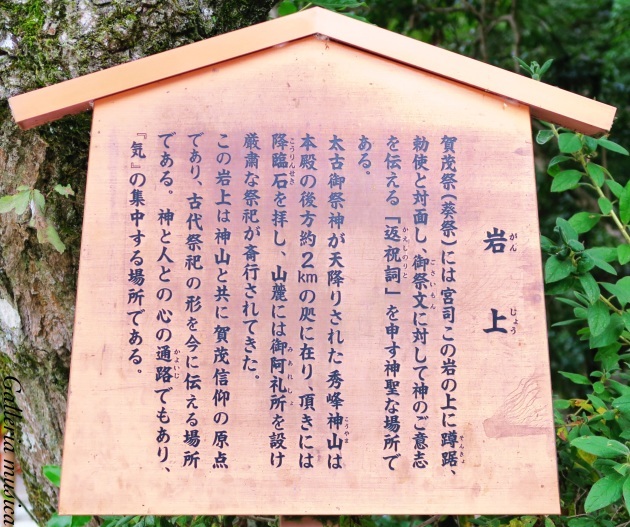 岩上
がんじょう
賀茂祭(葵祭)には宮司この岩の上に蹲踞、
そんきょ
勅使と対面し、御祭文に対して神のご意志
ごさいもん
を伝える「返祝詞」を申す神聖な場所で
かえしのりと
ある。
太古御祭神が天降りされた秀峰神山は
こうやま
本殿の後方約2kmの処に在り、頂きには
降臨石を拝し、山麓には御阿礼所を設け
こうりんせき
みあれしょ
厳粛な祭祀が斎行されてきた。
この岩上は神山と共に賀茂信仰の原点
であり、古代祭祀の形を今に伝える場所
である。神と人との心の通路でもあり、
かよいじ
『気』の集中する場所である。
Galleria musica